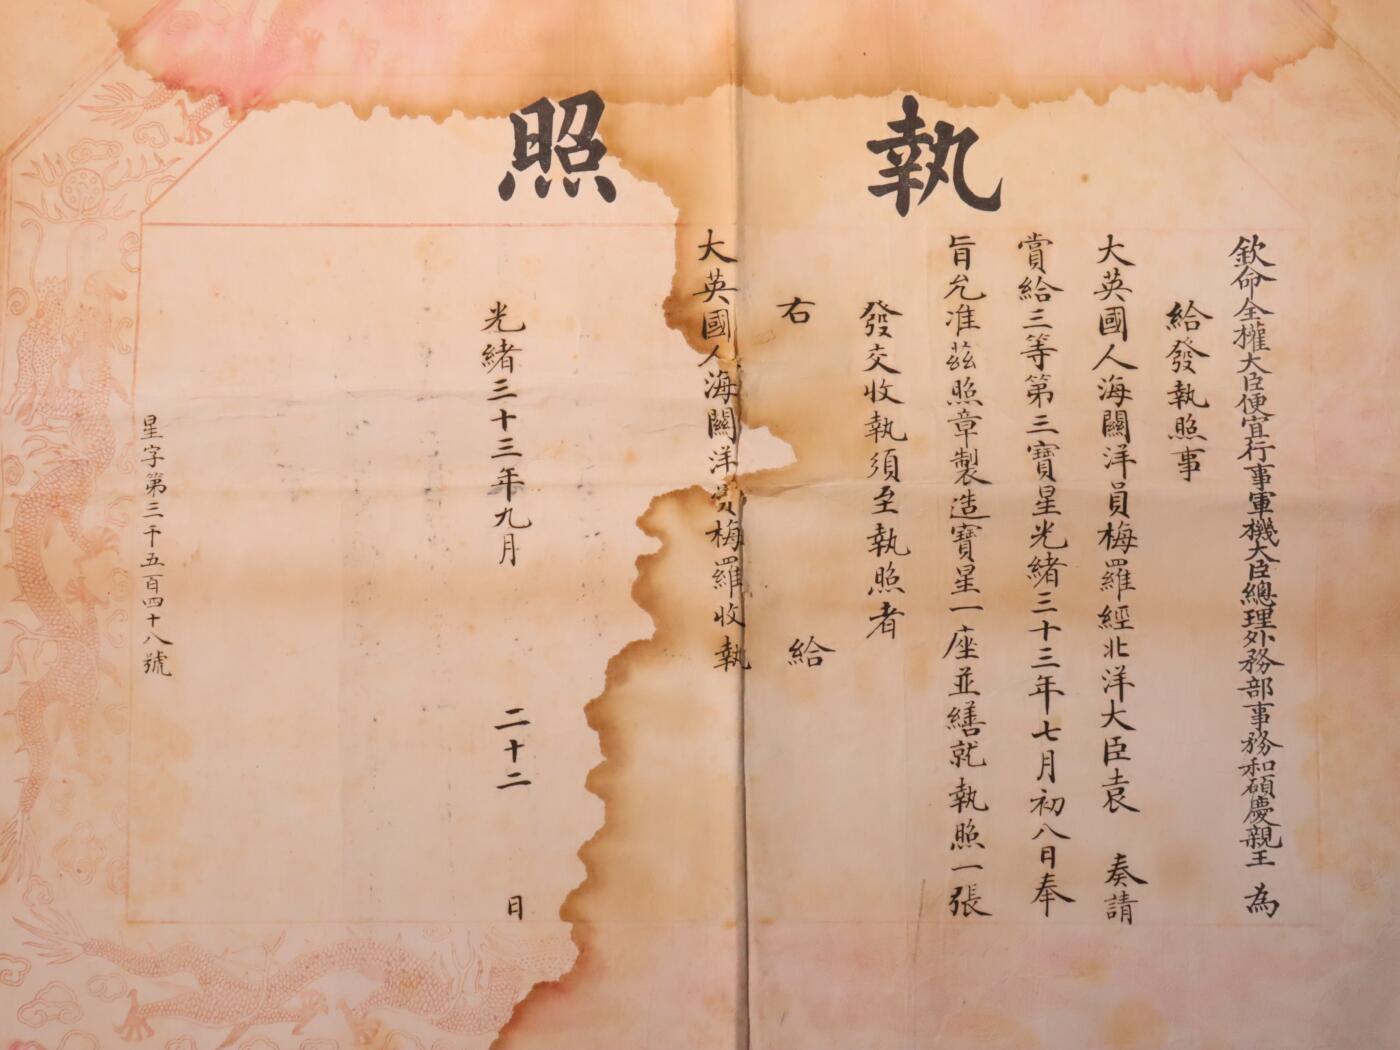 執照
欽命全權大臣便宜行事軍機大臣總理外務部事務和碩慶親王 為
給發執照事
大英國人海關洋員梅羅經北洋大臣袁 奏請
賞給三等第三寶星光緒三十三年七月初八日奉
旨允准茲照章製造寶星一座並繕就執照一張
發交收執須至執照者
右 給
大英國人海關洋員梅羅收執
光緒三十三年九月 二十二 日
星字第三千五百四十八號